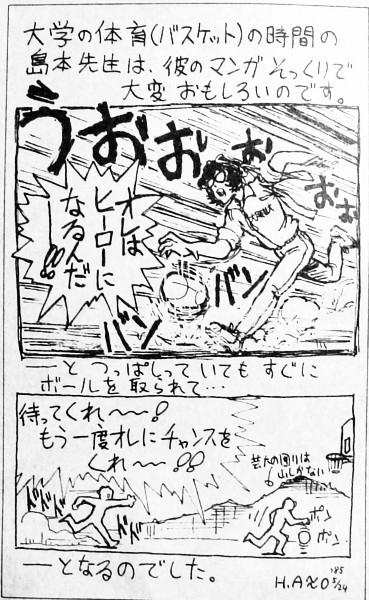 大学の体育(バスケット)の時間の
島本先生は、彼のマンガそっくりで
大変おもしろいのです。
うおおおおおおお
オレは
ヒーローに
なるんだ
!!!
バン
バン
——とつっぱしっていてもすぐに
ボールを取られて…
待ってくれ〜〜!
もう一度オレにチャンスを
くれ〜〜!!
芸大の回りは
山しかない
ドドドド
ポン
ポン
——となるのでした。
'85
5/24